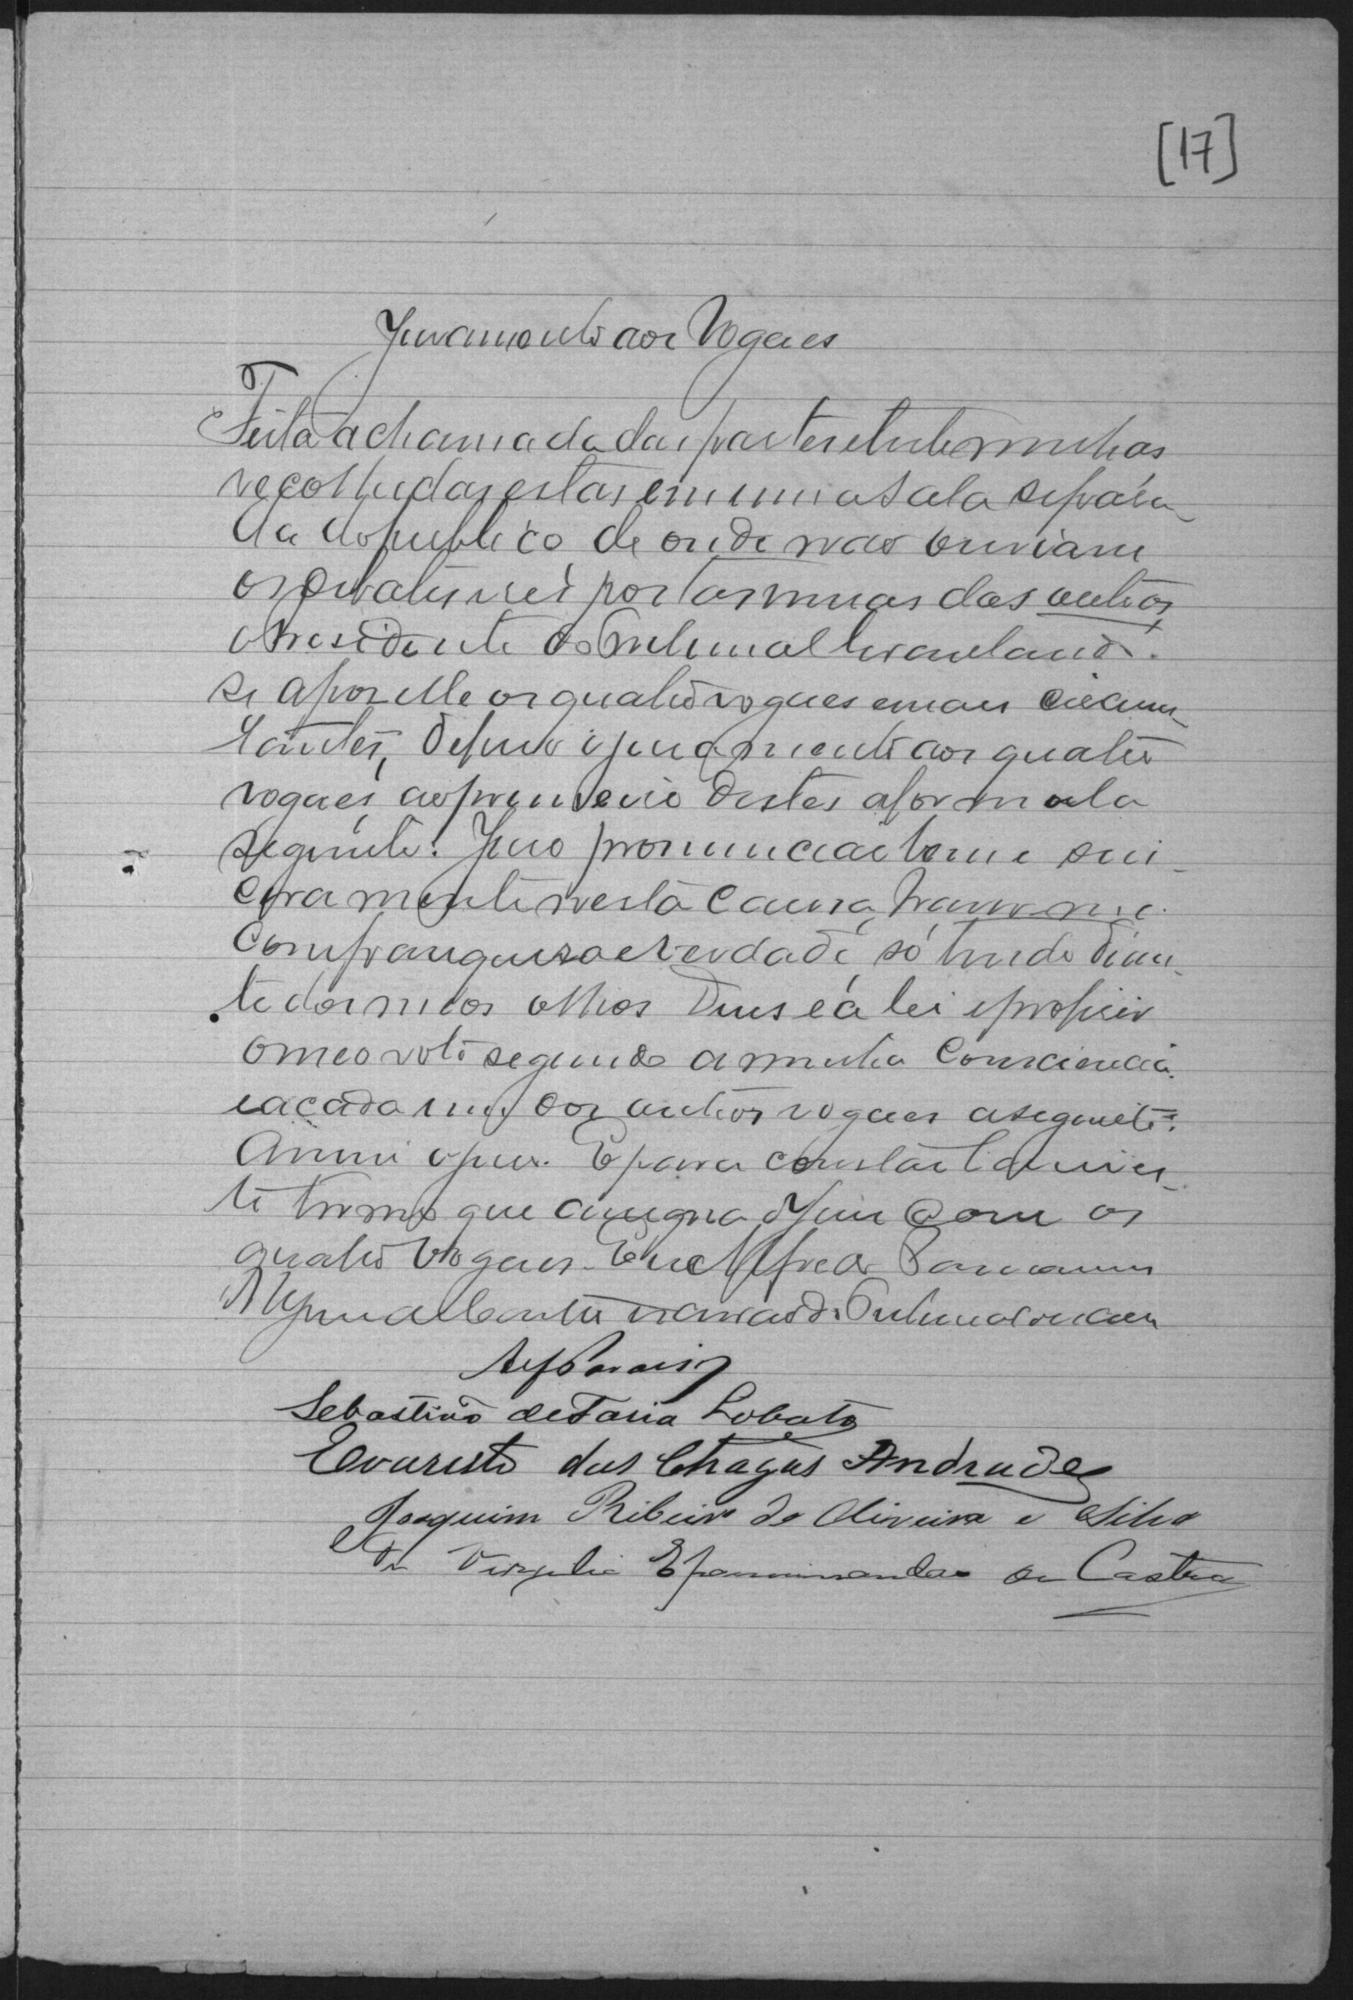 [17]
Juramento aos Vogaes
Feita a chamada das partes e testemunhas
recolhidas estas em uma sala separa-
da do publico de onde não ouviam
os debates nem as das outras,
o Presidente do Tribunal levantando-
se apoz elle os quatro vogaes e mais circums-
tantes, deferio o juramento aos quatro
vogaes, ao primeiro destes a formula
seguinte: Juro pronunciar bem e sin-
ceramente nesta causa, haver-me
com franqueza e verdade, só tendo dian-
te dos meos olhos Deus e a lei e proferir
o meo voto segundo a minha consciencia.
e a cada um dos outros vogaes a seguinte:
Assim o juro. E para constar lavrei es-
te termo que assigna o Juiz com os
quatro vogaes. Eu Alfredo
do Tribunal
Sebastião de Faria Lobato
Evaristo das Chagas Andrade
Joaquim Ribeiro de Oliveira e Silva
Dr Virgilio Epaminondas de Castro